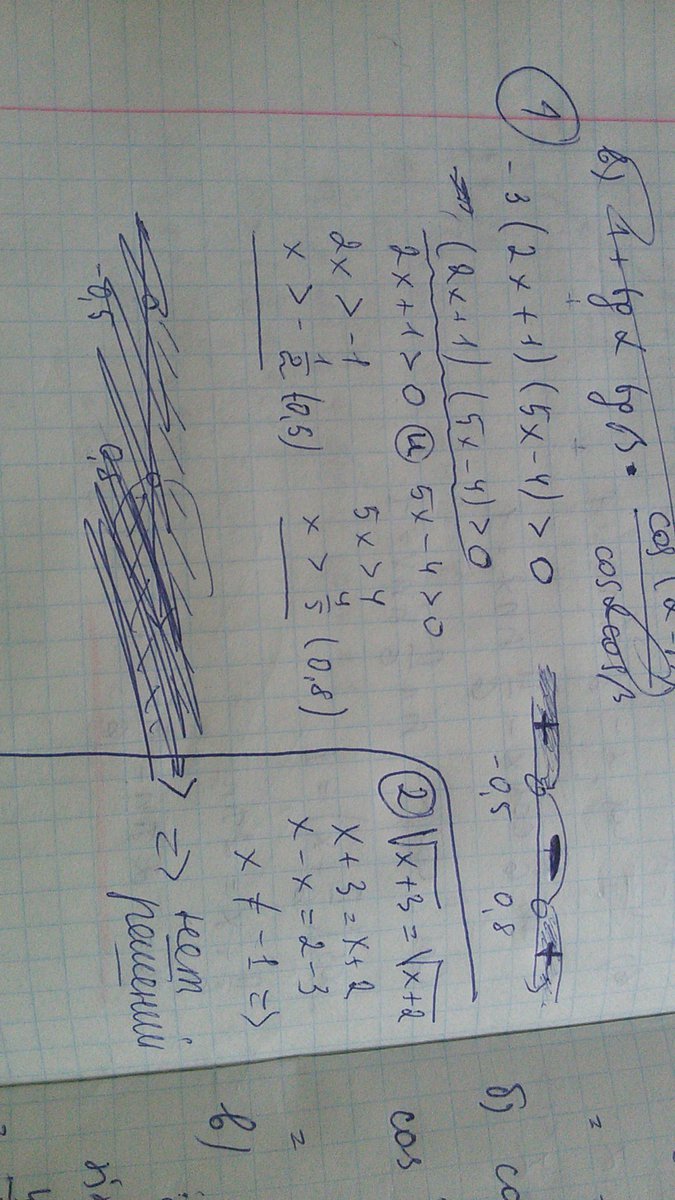 в) 1 + tg α tg β · cos(α - β) / cos α cos β
① -3(2x+1)(5x-4)>0
(2x+1)(5x-4)>0
2x+1>0 и 5x-4>0
2x>-1 5x>4
x>-1/2 (0,5) x>4/5 (0,8)
-0,5 0,8
+ - +
-0,5 0,8
② √x+3 = √x+2
x+3=x+2
x-x=2-3
x ≠ -1 =>
=> нет
решений
=
б) co
cos
=
в)